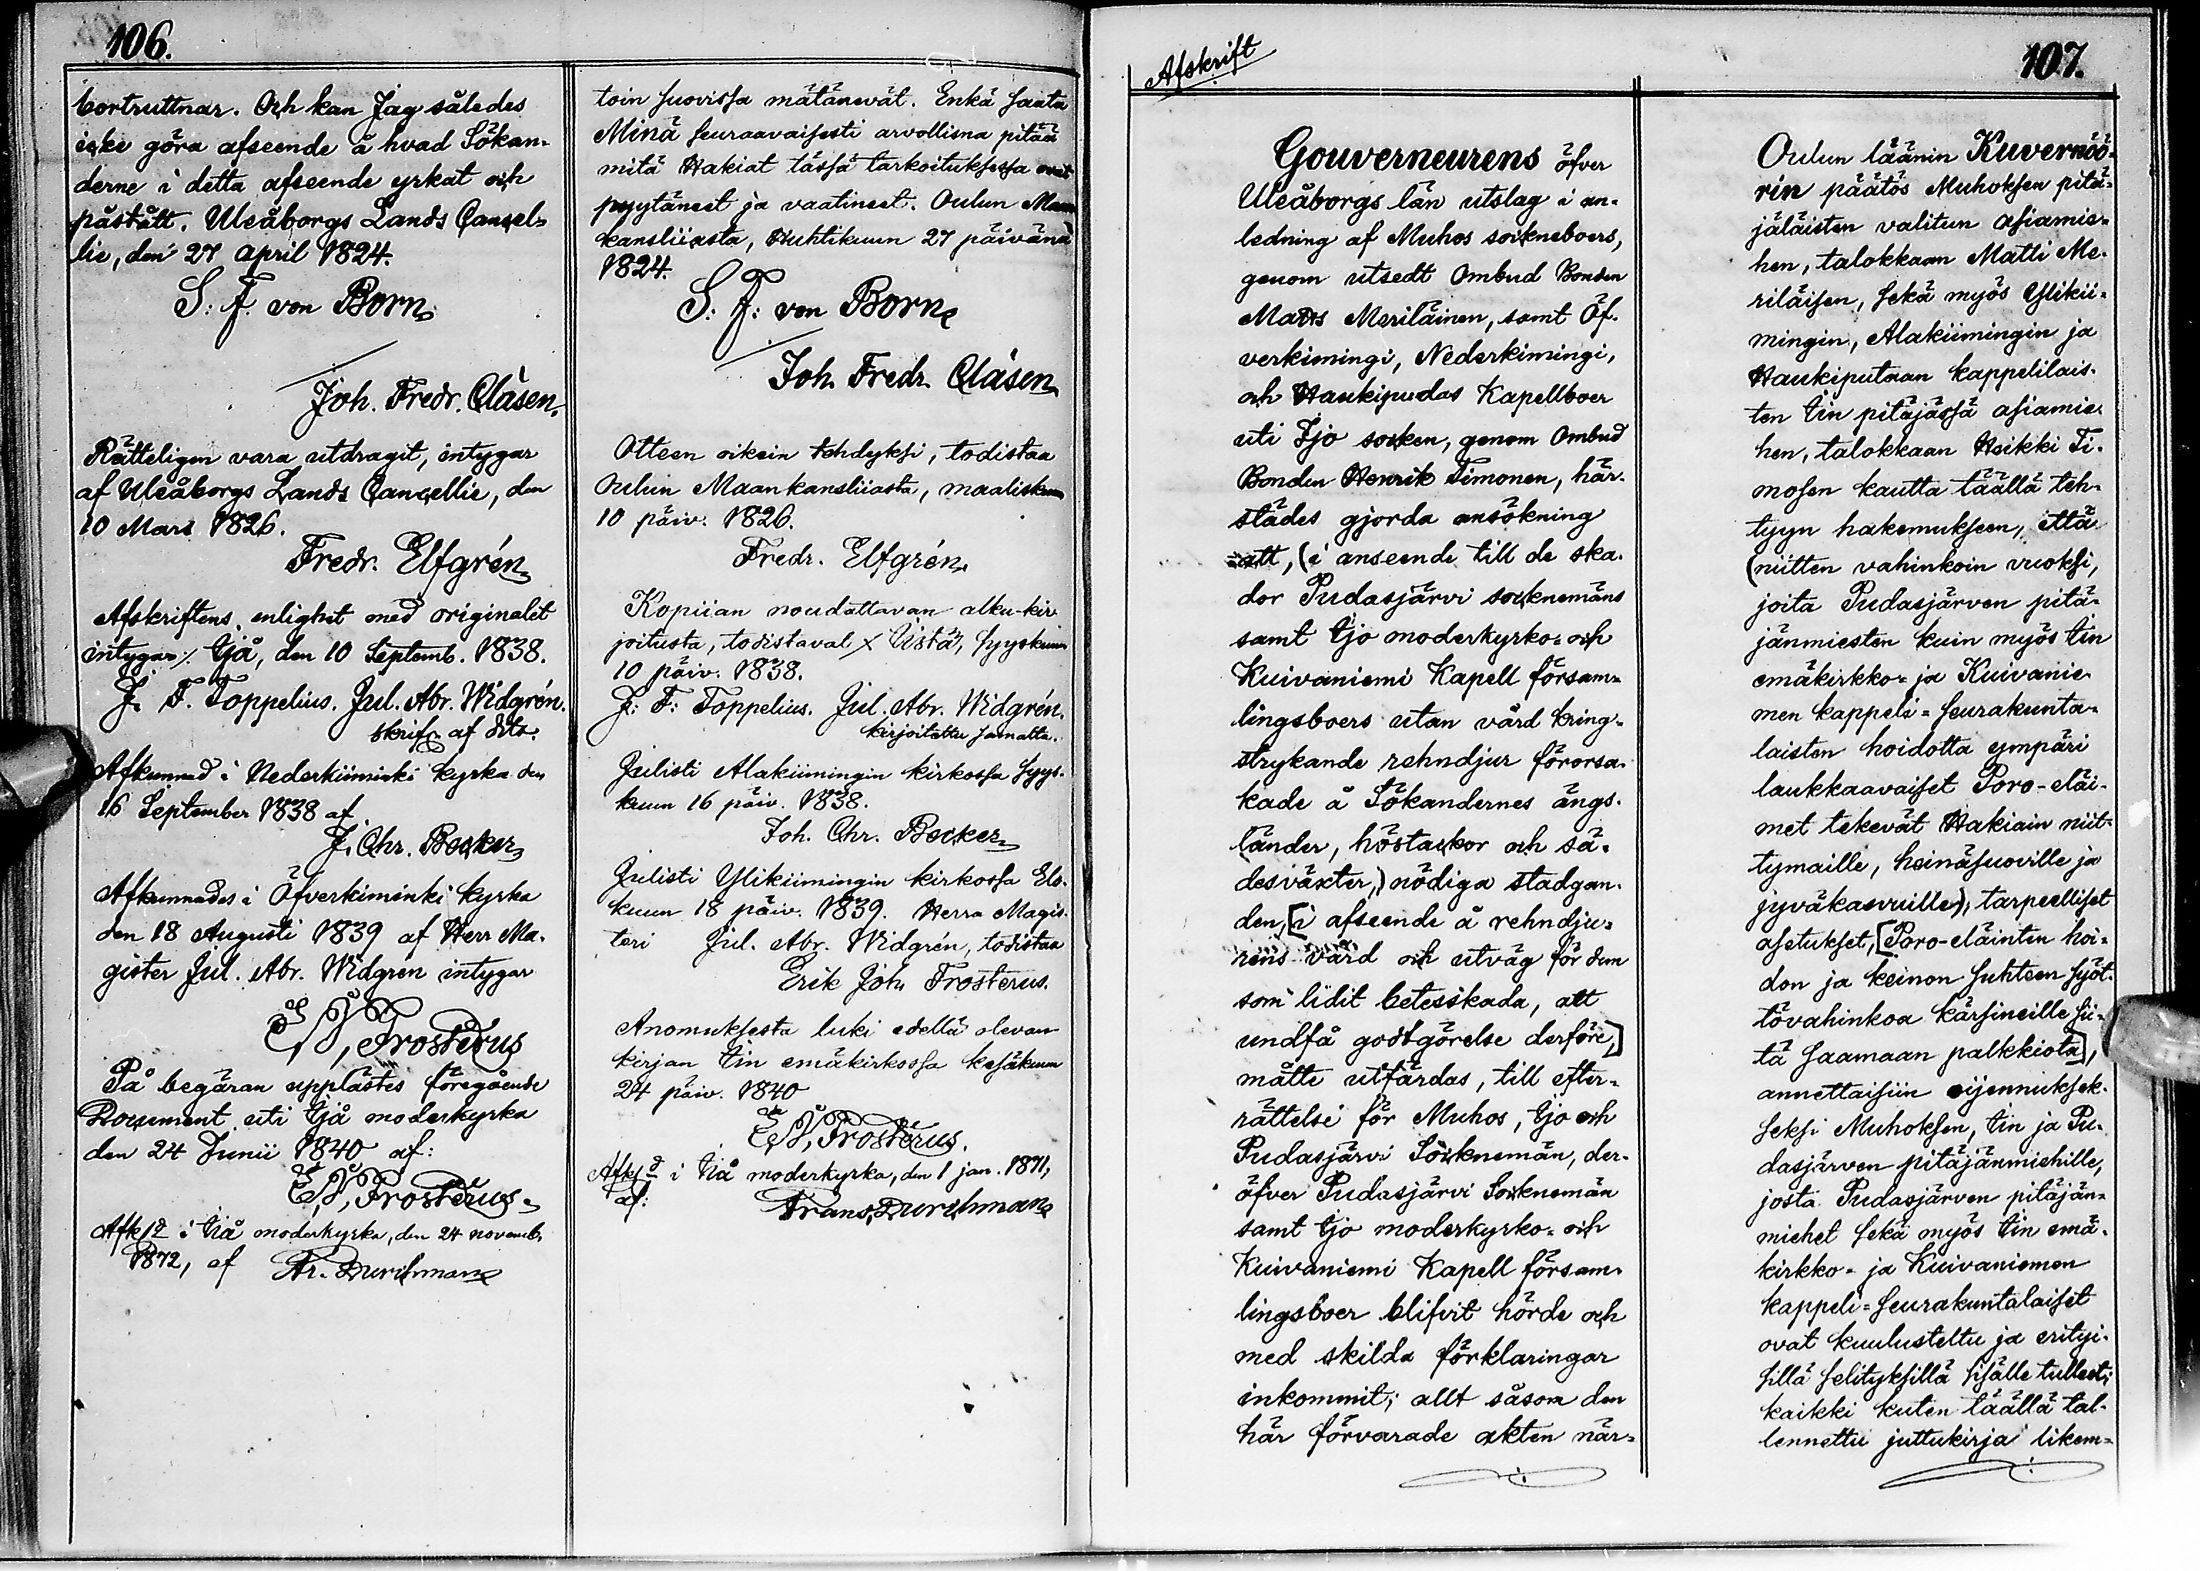 106.
bortruttnar. Och kan Jag således
icke göra afseende å hvad Sökan-
derne i detta afseende yrkat och
påstått. Uleåborgs Lands Cancel-
lie, den 27 april 1824.
S: F. von Born
Joh. Fredr. Clásen.
Rätteligen vara utdragit, intygar
af Uleåborgs Lands Cancellie, den
10 Mars 1826.
Fredr. Elfgrén
Afskriftens enlighet med originalet
intygar/. Ijå, den 10 Septemb. 1838.
J. F. Toppelius. Jul. Abr. Widgrén.
skrifr af dito.
Afkunnad i Nederkiiminki kyrka den
16 September 1838 af
J. Chr. Becker
Afkunnades i Öfverkiminki kyrka
den 18 Augusti 1839 af Herr Ma-
gister Jul. Abr. Widgren intygar
E. J. Frosterus
På begäran upplästes föregående
Document uti Ijå moderkyrka
den 24 Junii 1840 af:
E. J. Frosterus
Afkd i Iiå moderkyrka, den 24 novemb.
1872, af Fr. Durchman
toin suovissa mätänevät. Enkä saata
Minä seuraavaisesti arvollisna pitää
mitä Hakiat tässä tarkoituksessa ovat
pyytäneet ja vaatineet. Oulun Maan
kansliiasta, Huhtikuun 27 päivänä
1824.
S: F: von Born
Joh. Fredr. Clásen
Otteen oikein tehdyksi, todistaa
Oulun Maankansliiasta, maaliskuun
10 päiv. 1826.
Fredr. Elfgrén.
Kopiian noudattavan alku-kir
joitusta, todistavat x Iistä, Syyskuun
10 päiv. 1838.
J: F: Toppelius. Jul. Abr. Widgrén.
kirjoitettu samalta.
Julisti Alakiimingin kirkossa Syys-
kuun 16 päiv. 1838.
Joh. Chr. Becker
Julisti Ylikiimingin kirkossa Elo-
kuun 18 päiv. 1839. Herra Magis-
teri Jul. Abr. Widgrén, todistaa
Erik Joh. Frosterus.
Anomuksesta luki edellä olevan
kirjan Iin emäkirkossa kesäkuun
24 päiv. 1840
E. J. Frosterus.
Afkd i Iiå moderkyrka, den 1 jan. 1871,
af: Frans Durchman
Afskrift
107.
Gouverneurens öfver
Uleåborgs län utslag i an-
ledning af Muhos sockneboers,
genom utsedt Ombud Bonden
Matts Meriläinen, samt Öf-
verkimingi, Nederkimingi,
och Haukipudas Kapellboer
uti Ijo socken, genom Ombud
Bonden Henrik Timonen, här-
städes gjorda ansökning
att, (i anseende till de ska-
dor Pudasjärvi socknemäns
samt Ijo moderkyrko- och
Kuivaniemi Kapell försam-
lingsboers utan vård kring-
strykande rehndjur förorsa-
kade å Sökandernes ängs-
länder, höstackor och sä-
desväxter,) nödiga stadgan-
den, [i afseende å rehndju-
rens vård och utväg för dem
som lidit betesskada, att
undfå godtgörelse derföre,]
måtte utfärdas, till efter-
rättelse för Muhos, Ijo och
Pudasjärvi Socknemän, der-
öfver Pudasjärvi Socknemän
samt Ijo moderkyrko- och
Kuivaniemi Kapell försam-
lingsboer blifvit hörde och
med skilda förklaringar
inkommit; allt såsom den
här förvarade akten när-
Oulun läänin Kuvernöö-
rin päätös Muhoksen pitä-
jäläisten valitun asiamie-
hen, talokkaan Matti Me-
riläisen, sekä myös Ylikii-
mingin, Alakiimingin ja
Haukiputaan kappelilais-
ten Iin pitäjässä asiamie-
hen, talokkaan Heikki Ti-
mosen kautta täällä teh-
tyyn hakemukseen, että
(niitten vahinkoin vuoksi,
joita Pudasjärven pitä-
jänmiesten kuin myös Iin
emäkirkko- ja Kuivanie-
men kappeli-seurakunta-
laisten hoidotta ympäri
laukkaavaiset Poro-eläi-
met tekevät Hakiain niit-
tymaille, heinäsuoville ja
jyväkasvuille), tarpeelliset
asetukset, [Poro-eläinten hoi-
don ja keinon suhteen syöt-
tövahinkoa kärsineille sii-
tä saamaan palkkiota],
annettaisiin ojennuksek-
seksi Muhoksen, Iin ja Pu-
dasjärven pitäjänmiehille,
josta Pudasjärven pitäjän-
miehet sekä myös Iin emä-
kirkko- ja Kuivaniemen
kappeli-seurakuntalaiset
ovat kuulusteltu ja erityi-
sillä selityksillä sisälle tulleet;
kaikki kuten täällä tal-
lennettu juttukirja likem-